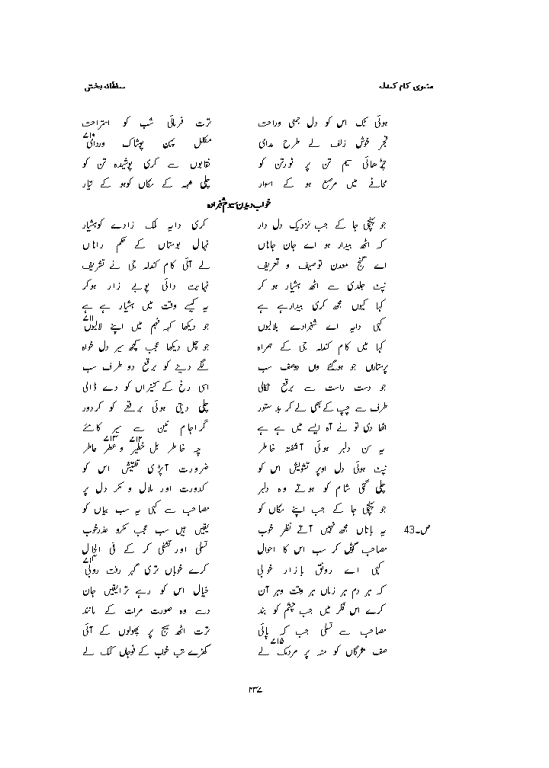 مثنوی کام کندلہ سلطانہ بخشی
ہوئی تک اس کو دل جمعی وراحت ترت فرمائی شب کو استراحت
فجر خوش زلف لے طرح مدای مکلل پہن پوشاک وردائی
چڑھائی سیم تن پر نورتن کو نقابوں سے کری پوشیدہ تن کو
محافے میں مرصع ہو کے اسوار چلی مہہ کے مکاں کو ہو کے تیار
خواب دیدن سیوم شہزادہ
جو پہنچی جا کے جب نزدیک دل دار کری دایہ ملک زادے کو ہشیار
کہ اٹھ بیدار ہو اے جان جاناں نہال بوستاں کے حکم راناں
اے گنج معدن توصیف و تعریف لے آئی کام کندلہ جی نے تشریف
نپٹ جلدی سے اٹھ ہشیار ہو کر نہایت دائی ہوے زار ہوکر
کہا کیوں مجھ کری بیدار ہے ہے یہ کیسے وقت میں ہشیار ہے ہے
کہی دایہ اے شہزادے بلالیوں جو دیکھا کہہ فہم میں اپنے لالیوں
کہا میں کام کندلہ جی کے ہمراہ جو چل دیکھا عجب کچھ سیر دل خواہ
پرستاراں جو ہوگئے وں دوصف سب لگے دینے کو برقع دو طرف سب
جو دست راست سے برقع نکالی اسی رخ کے کنیزاں کو دے ڈالی
طرف سے چپ کے بھی لے کر بدستور چلی دیتی ہوئی برقعے کو کر دور
اٹھا دی تو نے آہ ایسے میں ہے ہے
یہ سن دلبر ہوئی آشفتہ خاطر
نپٹ ہوئی دل اوپر تشویش اس کو ضرورت آپڑی تفتیش اس کو
چلی گئی شام کو ہوتے وہ دلبر کدورت اور ملال و مکر دل پر
جو پہنچی جا کے جب اپنے مکاں کو مصاحب سے کہی یہ سب بیاں کو
ص۔43 یہ باتاں مجھ نہیں آتے نظر خوب یقیں ہیں سب عجب مکرو عذرخوب
مصاحب کہی کر سب اس کا احوال تسلی اور تشفی کر کے فی الحال
کہی اے رونق بازار خوبی کرے خوباں تری
کہ ہر دم ہر زماں ہر وقت وہر آن خیال اس کو رہے ترا یقیں جان
کرے اس فکر میں جب چشم کو بند دسے وہ صورت مرات کے مانند
مصاحب سے تسلی جب کہ پائی ترت اٹھ سیج پر پھولوں کے آئی
صف مژگاں کو منہ پر مردمک لے کھڑے تب خواب کے فوجاں کمک لے
۴۳۷